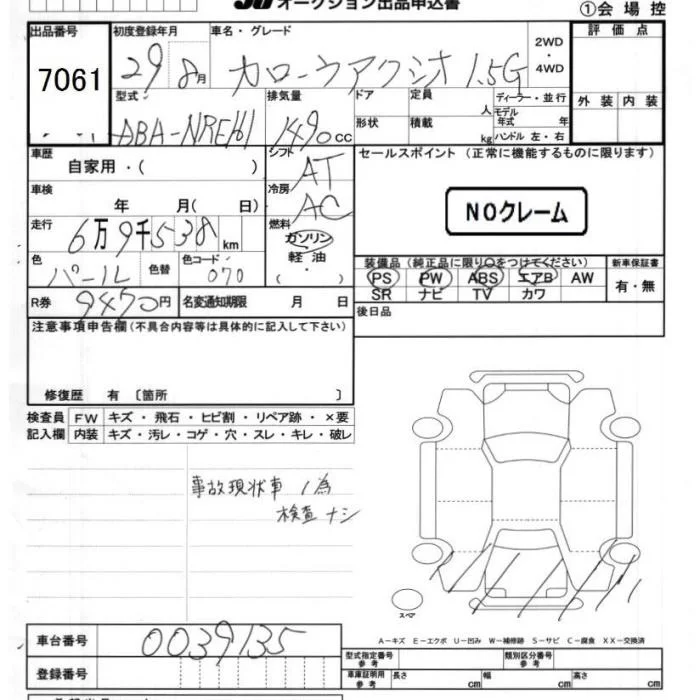 オークション出品申込書
①会場控
出品番号 初度登録年月 車名・グレード 評価点
7061 29 8月 カローラアクシオ 1.5G 2WD・4WD
型式 排気量 ドア 定員 人 ディーラー・並行 外装 内装
ABA-NRE161 1490cc 形状 積載 kg モデル年式 年 ハンドル 左・右
車歴 シフト セールスポイント (正常に機能するものに限ります)
自家用・( ) AT
車検 冷房 NOクレーム
年 月( 日) AC
走行 燃料
6万9千538km ガソリン
色 色替 色コード 軽油 装備品(純正品に限り○をつけてください) 新車保証書
パール 070 ( ) PS PW ABS エアB AW 有・無
R券 9470円 名変通知期限 月 日 SR ナビ TV カワ
注意事項申告欄(不具合内容等は具体的に記入して下さい) 後日品
修復歴 有 〔箇所 〕
検査員 FW キズ・飛石・ヒビ割・リペア跡・×要
記入欄 内装 キズ・汚レ・コゲ・穴・スレ・キレ・破レ
事故現状車ノ為
検査ナシ
スペア
A-キズ E-エクボ U-凹み W-補修跡 S-サビ C-腐食 XX-交換済
車台番号 0039135 型式指定番号 参考 類別区分番号 参考
登録番号 車庫証明用 参考 長さ cm 幅 cm 高さ cm